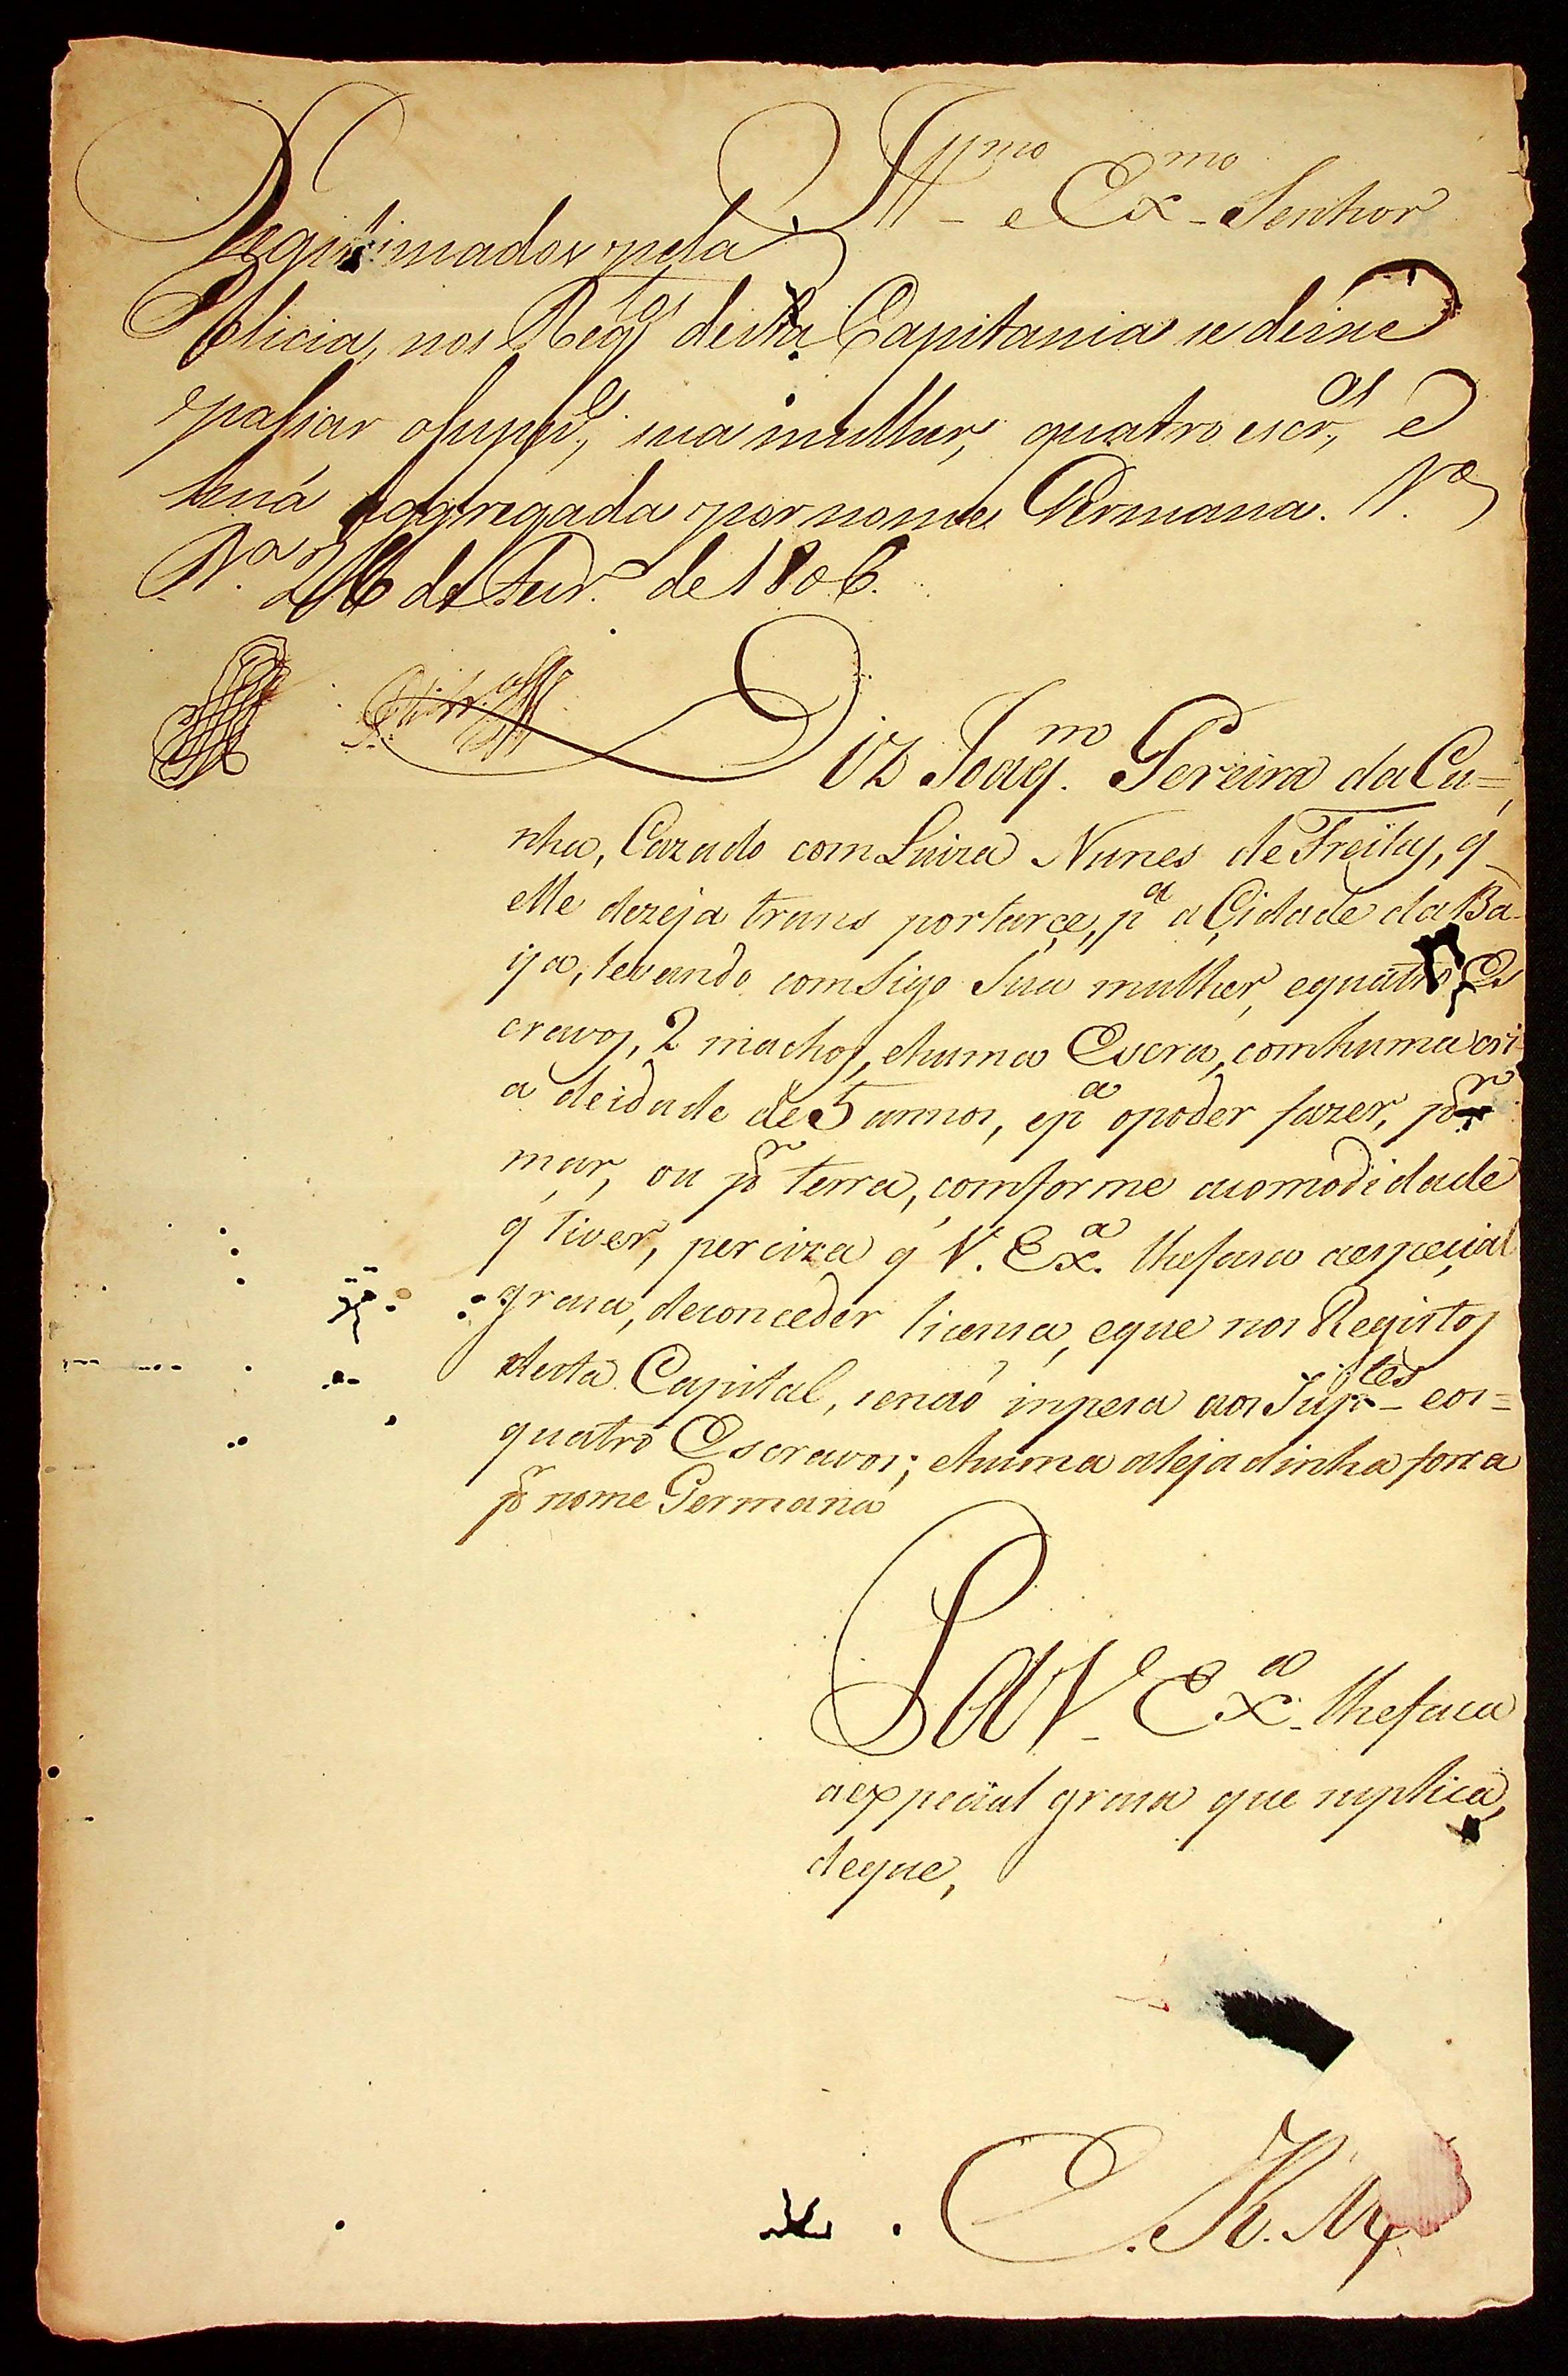 Illmo e Exmo Senhor
Legitimados pela
Policia, nos Regtos desta Capitania se deixe
passar o Suppe, sua mulher, quatro escros, e
huã aggregada por nome Germana. Va
Ra 26 de Fevro de 1806.
Diz Joaqm Pereira da Cu=
nha, Cazado com Luiza Nunes de Freitas, q
elle dezeja trans portarçe, pa a Çidade da Ba-
iya, levando comsigo Sua mulher, equatro Es
cravos, 2 machos, ehuma Escra, comhuma cri
a deidade de 5 annos, epa opoder fazer, por
mar, ou pr terra, comforme acomodidade
q tiver, perciza q V. Exa. lhefasa aespeçial
grasa, deconceder licensa, eque nos Registos
desta Capital, senaõ inpesa aos Suptes eos=
quatro Escravos; ehuma alejadinha forra
pr nome Germana
P a V. Exa. lhefaca
aexpecial grasa que suplica,
deque,
E. R. M